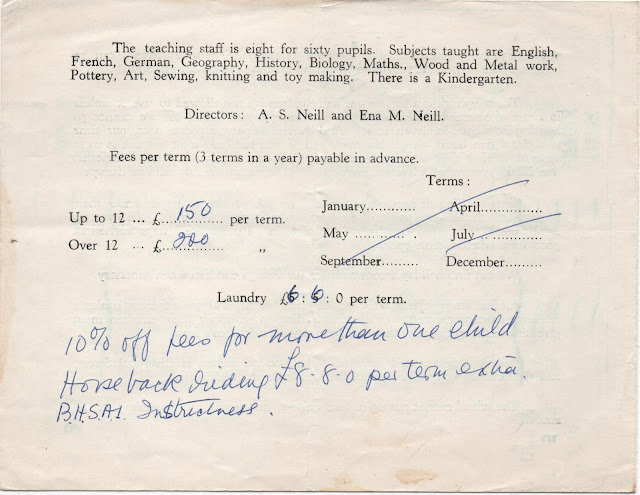 The teaching staff is eight for sixty pupils. Subjects taught are English,
French, German, Geography, History, Biology, Maths., Wood and Metal work,
Pottery, Art, Sewing, knitting and toy making. There is a Kindergarten.
Directors: A. S. Neill and Ena M. Neill.
Fees per term (3 terms in a year) payable in advance.
Terms:
Up to 12 ... £ 150 per term.
Over 12 ... £ 200 „
January............ April...............
May ............ . July...............
September......... December.........
Laundry £6 : 6 : 0 per term.
10% off fees for more than one child
Horseback riding £8-8-0 per term extra.
B.H.S.A.I. Instructress.